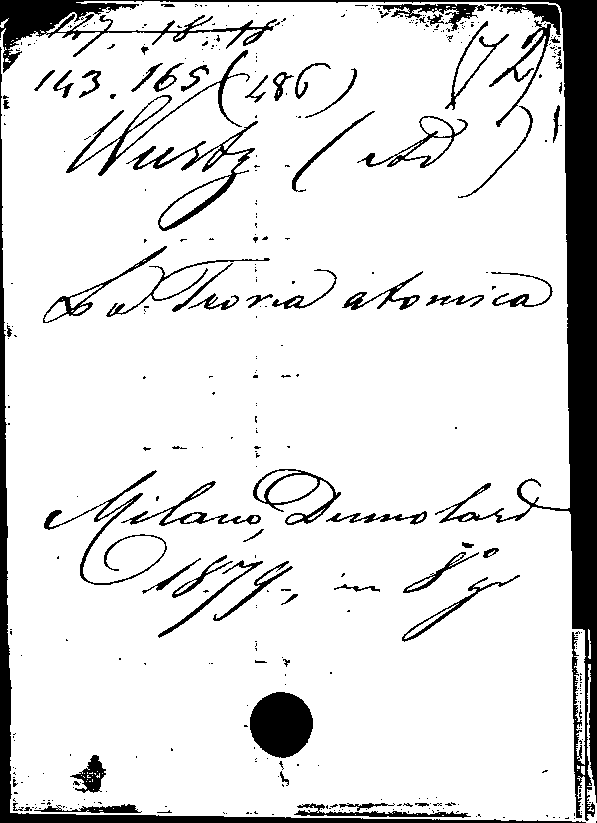 147. 18. 18
143. 165 (486) (72)
Wurtz (Ad)
La Teoria atomica
Milano, Dumolard
1879, in 8° gr